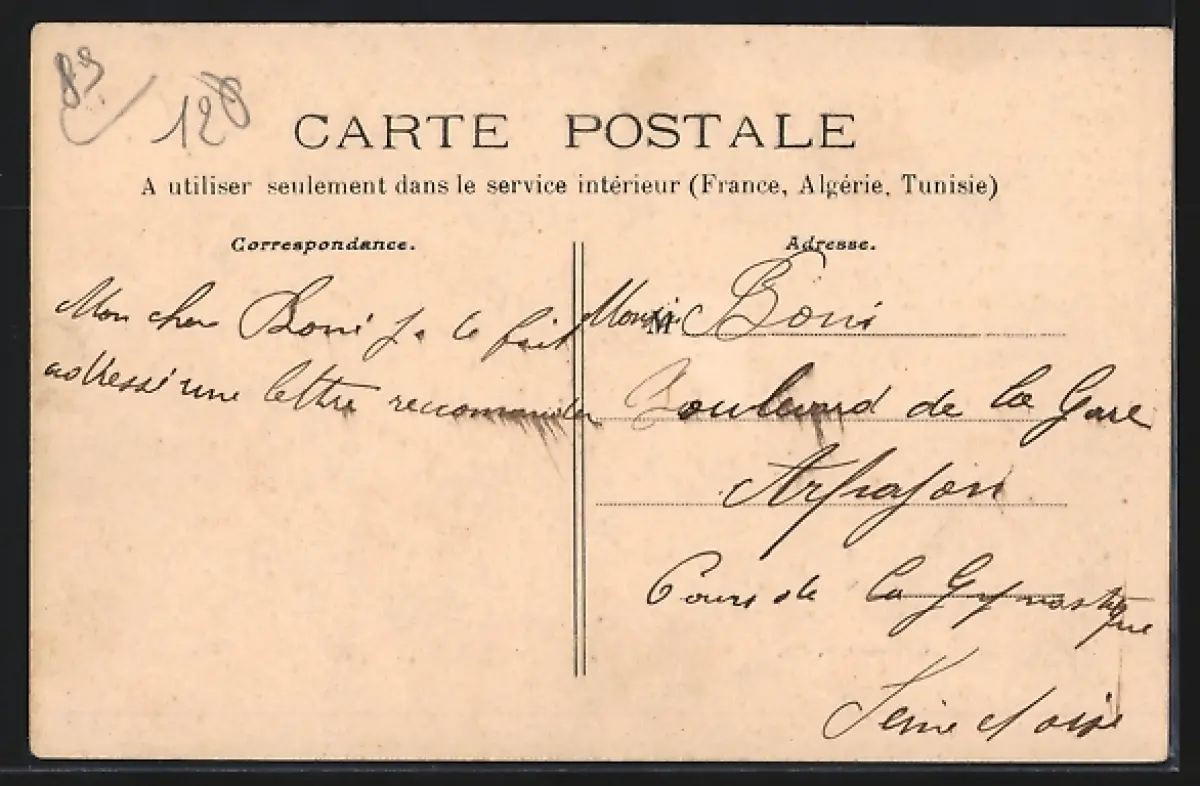 83
120
CARTE POSTALE
A utiliser seulement dans le service intérieur (France, Algérie, Tunisie)
Correspondance.
Mon cher Boni je te fait
adressé une lettre recommander
Adresse.
M
Monsi Boni
Boulevard de la Gare
Arpajon
Cours de la Gymnastique
Seine et oise